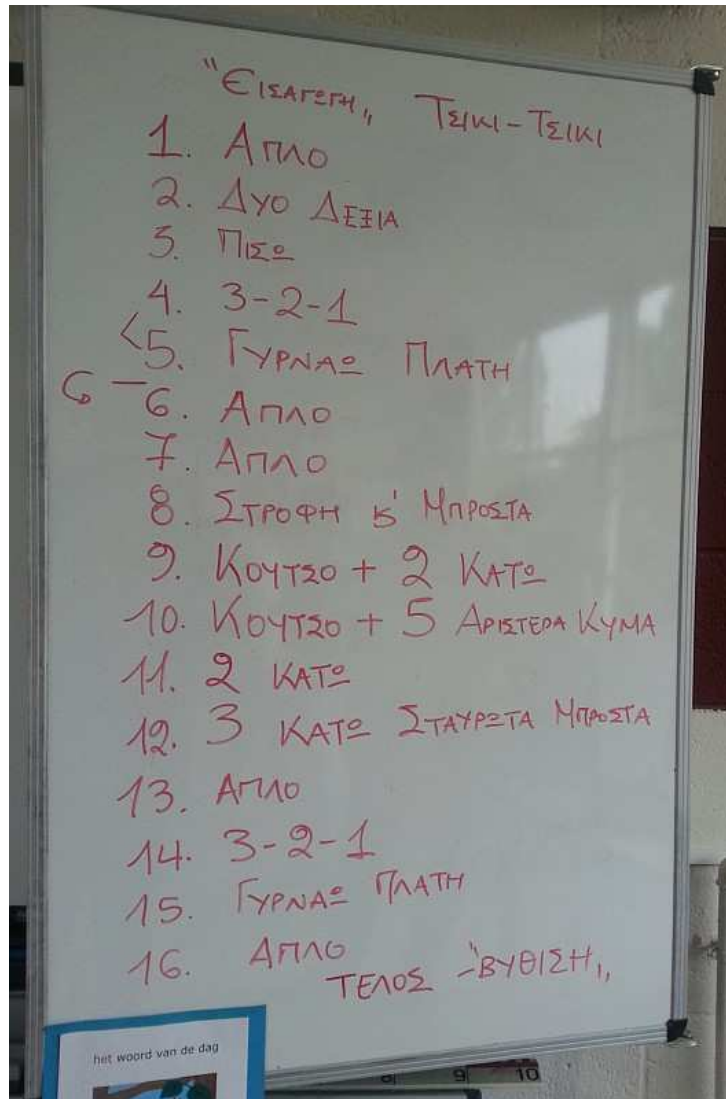 "ΕΙΣΑΓΩΓΗ„ ΤΣΙΚΙ-ΤΣΙΚΙ
1. ΑΠΛΟ
2. ΔΥΟ ΔΕΞΙΑ
3. ΠΙΣΩ
4. 3-2-1
<5. ΓΥΡΝΑΩ ΠΛΑΤΗ
6. ΑΠΛΟ
7. ΑΠΛΟ
8. ΣΤΡΟΦΗ Κ' ΜΠΡΟΣΤΑ
9. ΚΟΥΤΣΟ + 2 ΚΑΤΩ
10. ΚΟΥΤΣΟ + 5 ΑΡΙΣΤΕΡΑ ΚΥΜΑ
11. 2 ΚΑΤΩ
12. 3 ΚΑΤΩ ΣΤΑΥΡΩΤΑ ΜΠΡΟΣΤΑ
13. ΑΠΛΟ
14. 3-2-1
15. ΓΥΡΝΑΩ ΠΛΑΤΗ
16. ΑΠΛΟ
ΤΕΛΟΣ - "ΒΥΘΙΣΗ„
het woord van de dag
8 9 10